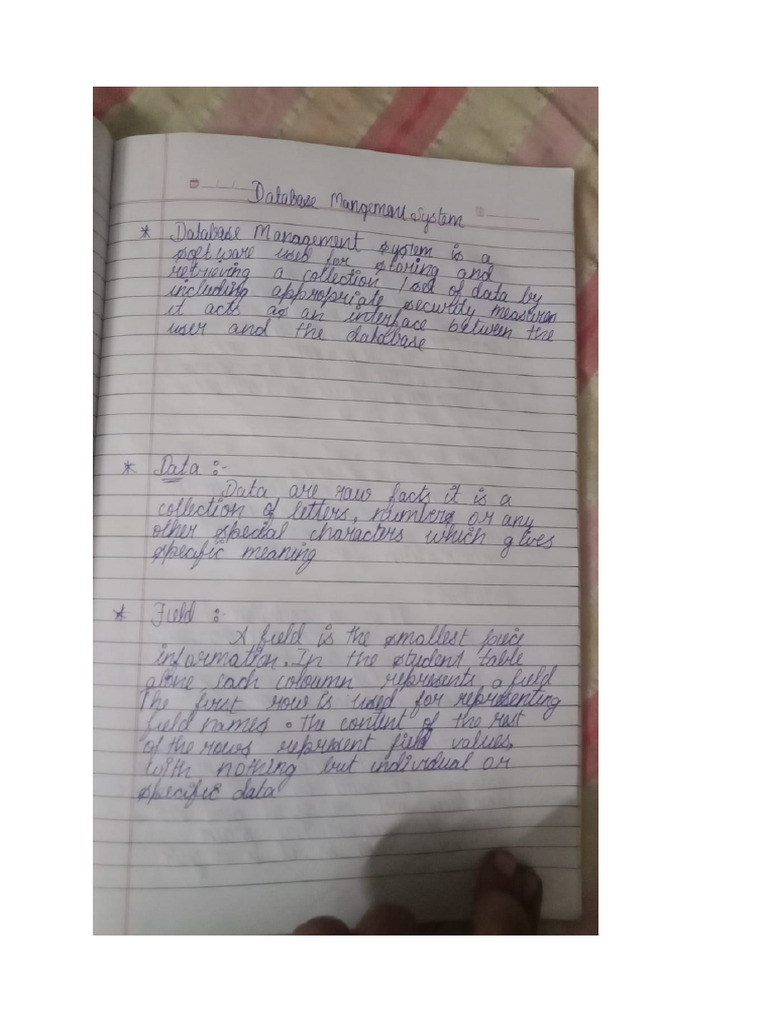 Database Mangement System
* Database Management system is a
software used for storing and
retrieving a collection / set of data by
including appropriate security measures
it acts as an interface between the
user and the database
* Data :-
Data are raw facts it is a
collection of letters, numbers or any
other special characters which gives
specific meaning
* Field :-
A field is the smallest piece
information. In the student table
alone each coloumn represents a field
The first row is used for representing
field names. The content of the rest
of the rows represent field values,
with nothing but individual or
specific data